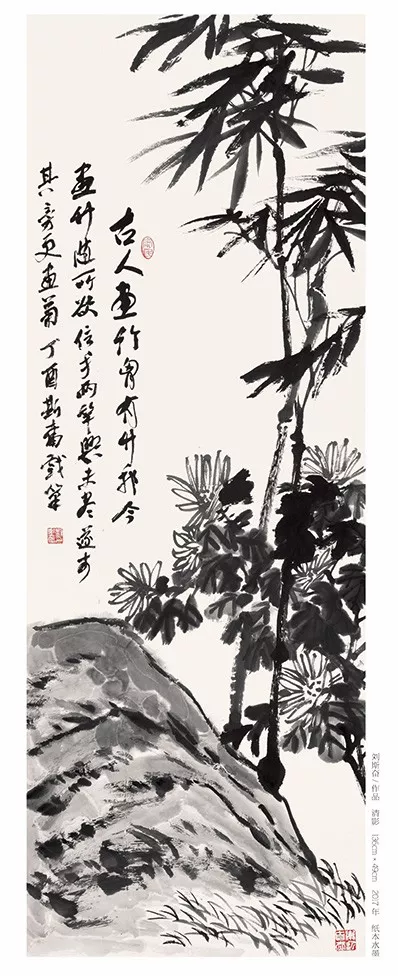 古人画竹胸有竹我今
画竹随所欲信手两竿兴未尽遂于
其旁更画菊丁酉斯奋戏笔
刘斯奋/作品 清影 136cm×49cm 2017年 纸本水墨